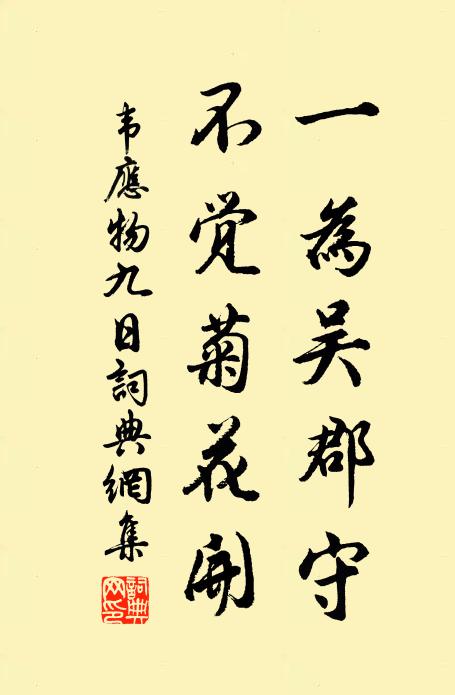 一為吴郡守
不覚菊花開
韦應物九日詞典網集
詞典网印